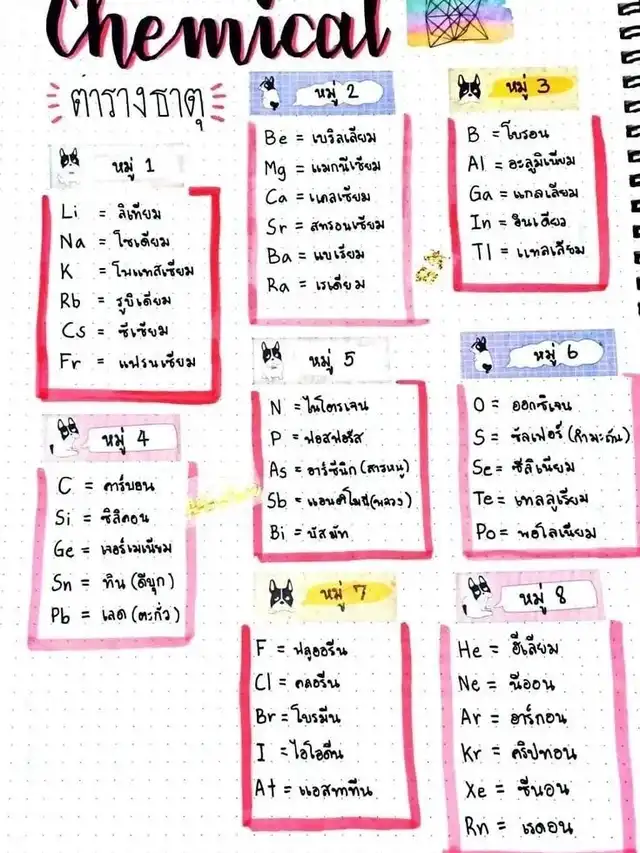 Chemical
ตารางธาตุ
หมู่ 1
Li = ลิเทียม
Na = โซเดียม
K = โพแทสเซียม
Rb = รูบิเดียม
Cs = ซีเซียม
Fr = แฟรนเซียม
หมู่ 2
Be = เบริลเลียม
Mg = แมกนีเซียม
Ca = แคลเซียม
Sr = สทรอนเซียม
Ba = แบเรียม
Ra = เรเดียม
หมู่ 3
B = โบรอน
Al = อะลูมิเนียม
Ga = แกลเลียม
In = อินเดียว
Tl = แทลเลียม
หมู่ 4
C = คาร์บอน
Si = ซิลิคอน
Ge = เจอร์เมเนียม
Sn = ทิน (ดีบุก)
Pb = เลด (ตะกั่ว)
หมู่ 5
N = ไนโตรเจน
P = ฟอสฟอรัส
As = อาร์ซินิก (สารหนู)
Sb = แอนติโมนี(พลวง)
Bi = บิสมัท
หมู่ 6
O = ออกซิเจน
S = ซัลเฟอร์ (กำมะถัน)
Se = ซีลิเนียม
Te = เทลลูเรียม
Po = พอโลเนียม
หมู่ 7
F = ฟลูออรีน
Cl = คลอรีน
Br = โบรมีน
I = ไอโอดีน
At = แอสทาทีน
หมู่ 8
He = ฮีเลียม
Ne = นีออน
Ar = อาร์กอน
Kr = คริปทอน
Xe = ซีนอน
Rn = เรดอน